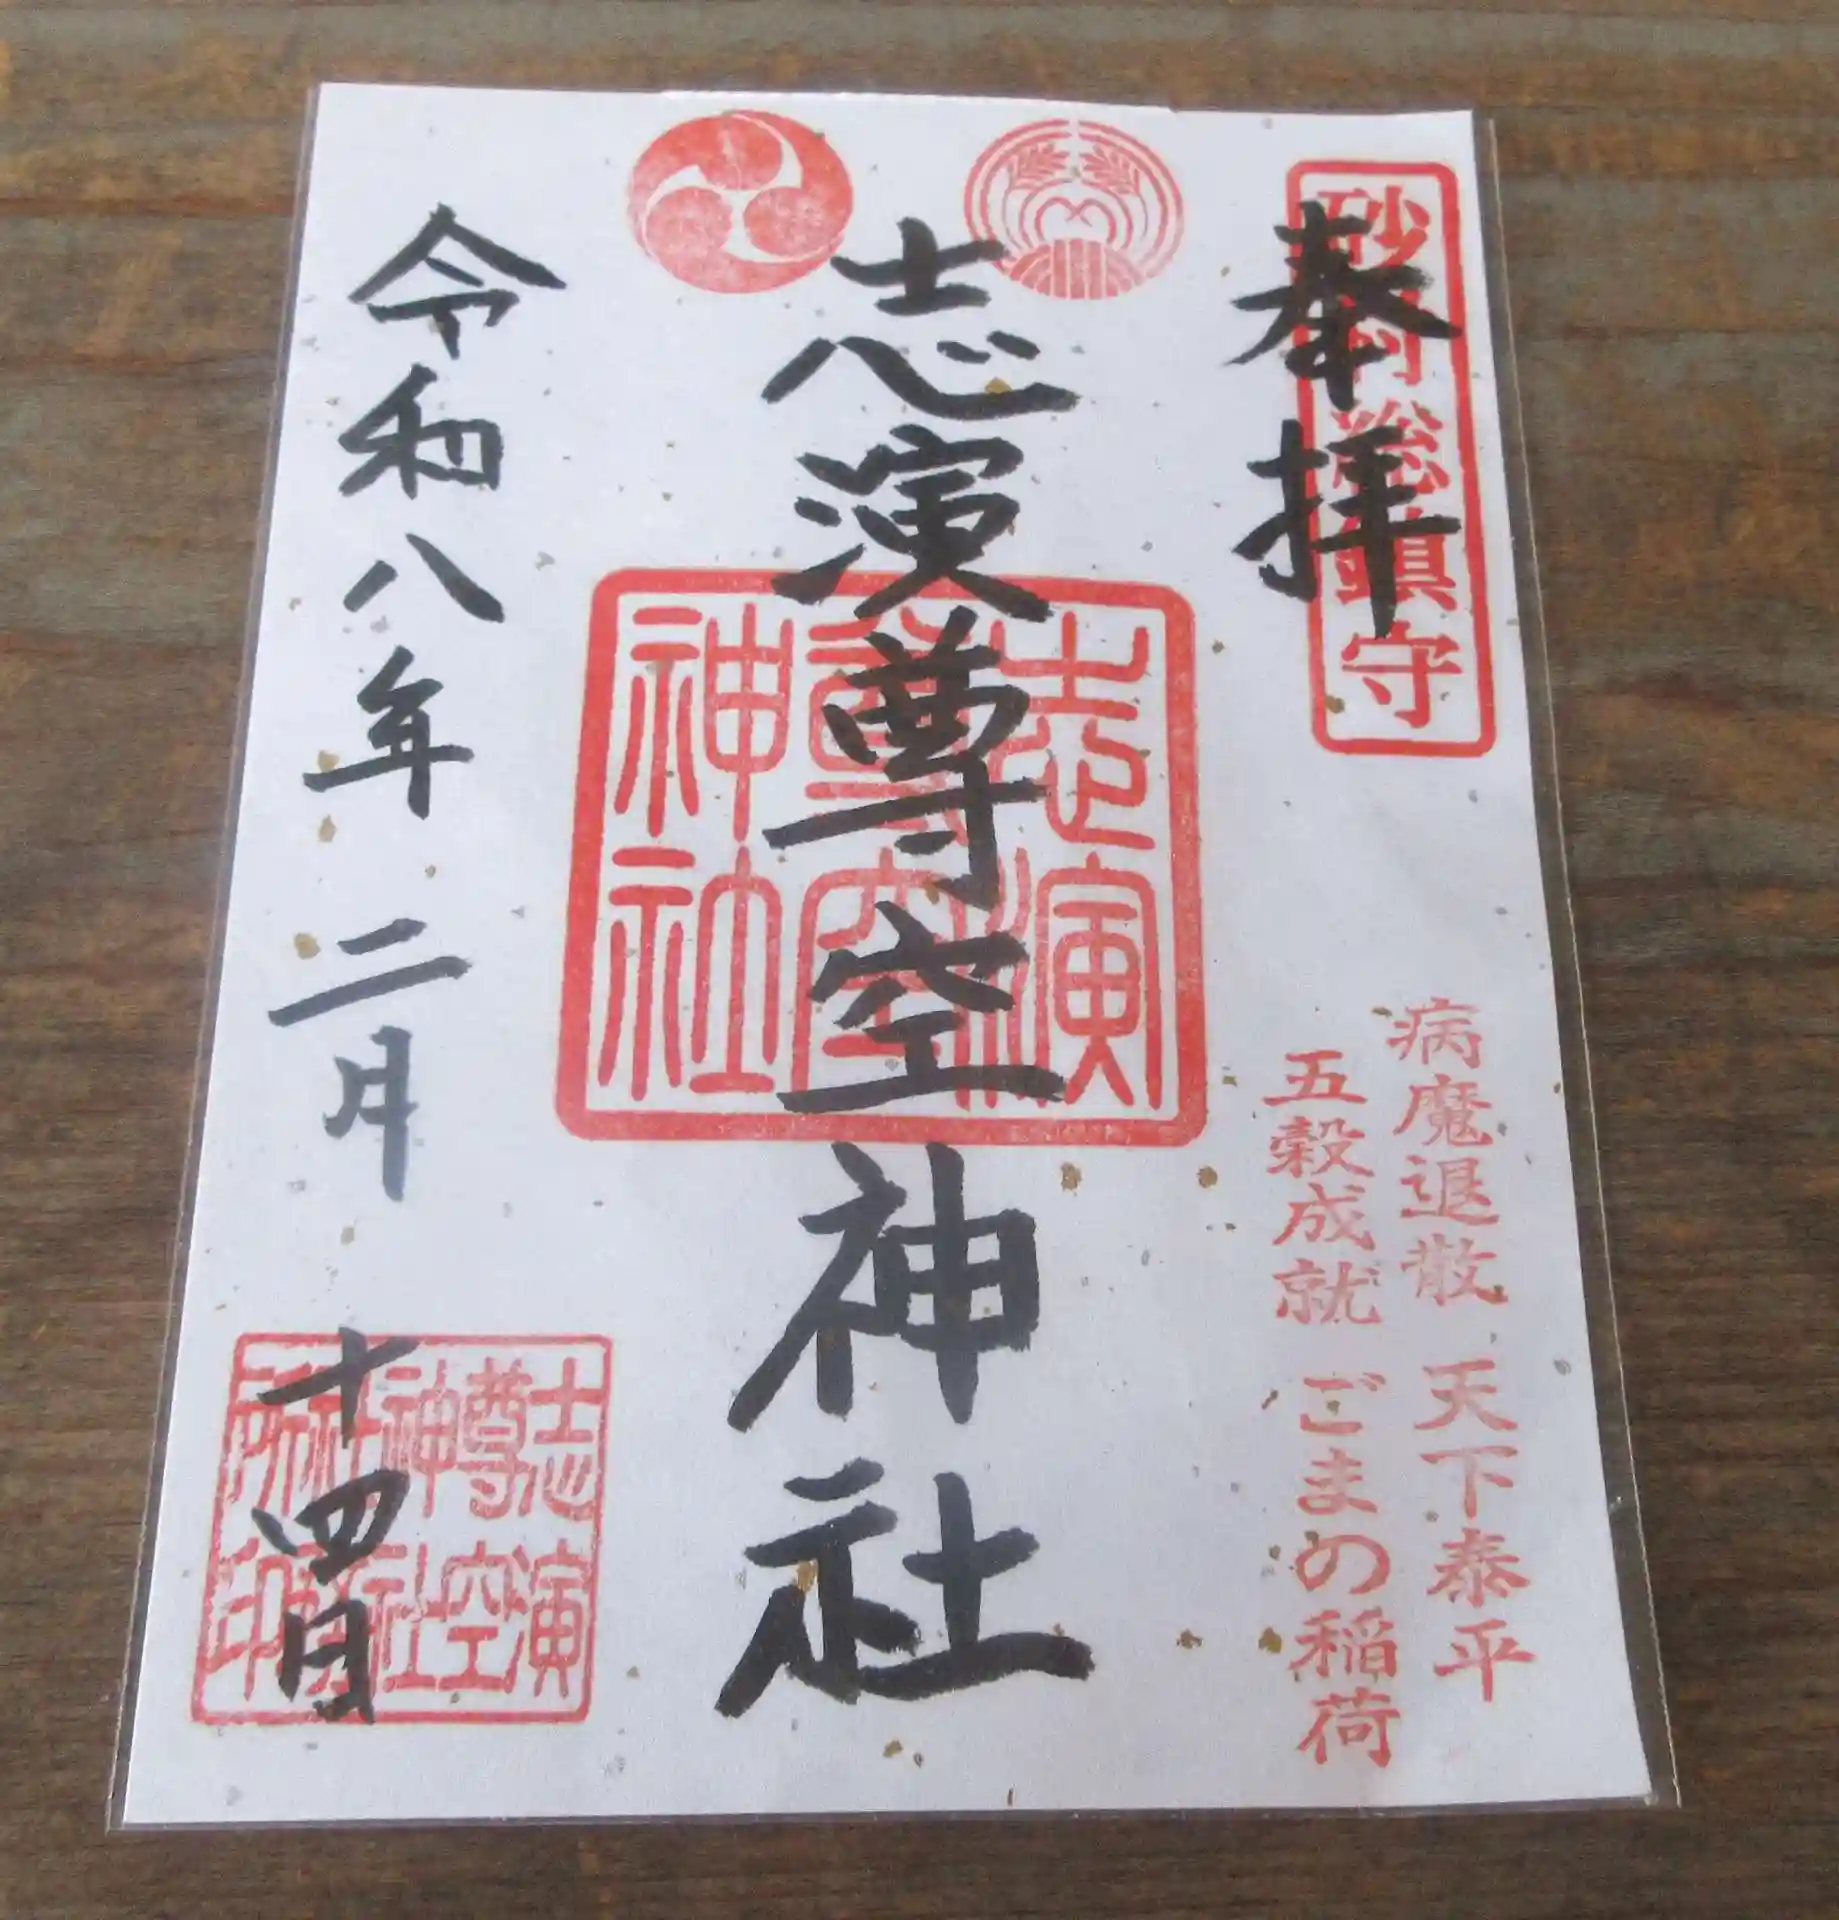 砂村総鎮守
奉拝
病魔退散 天下泰平
五穀成就 ごまの稲荷
志演尊空神社
志演
尊空
神社
令和八年二月十四日
志演
尊空
神社